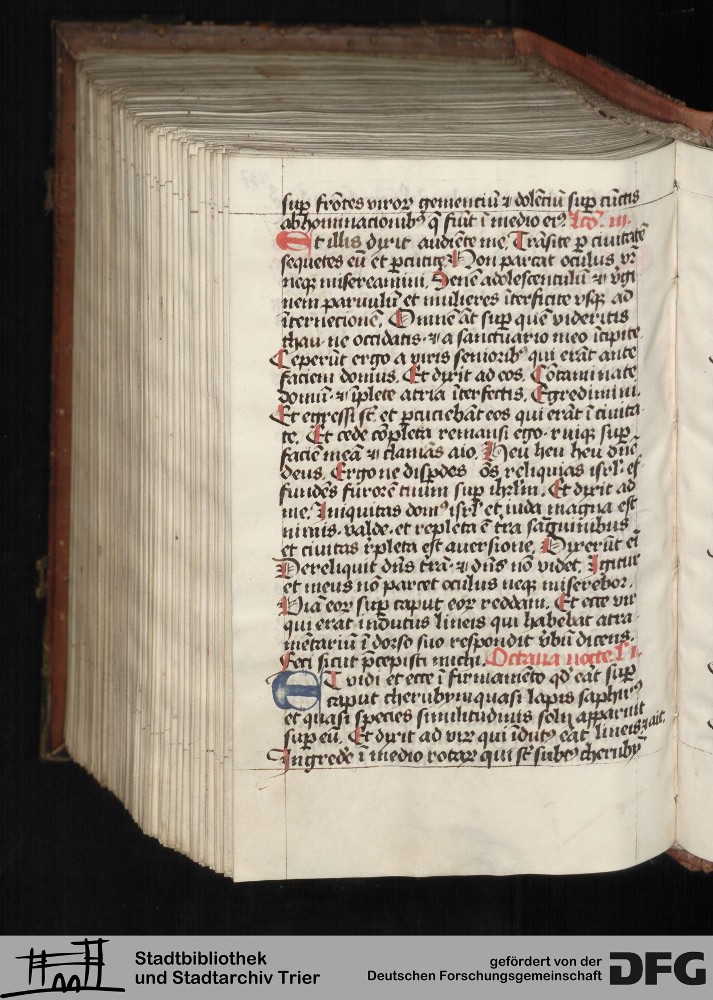 sup frōtes viroꝝ gemenciū ⁊ dolēciū sup cūctis
abhominacionibꝰ q̄ fiūt ī medio eiꝰ. lcō. iii.
Et illis dixit audiēte me. Trāsite ꝑ civitatē
sequētes eū et ꝑcutite. Non parcat oculus vr̄
neqꝫ misereamini. Senē adolescentulū ⁊ v̓gi
nem parvulū et mulieres īterficite usqꝫ ad
īternecionē. Omnē āt sup quē videritis
thau ne occidatis. ⁊ a sanctuario meo īcipite.
Ceperūt ergo a viris seniorib̓ qui erāt ante
faciem domus. Et dixit ad eos. Cōtaminate
domū. ⁊ īplete atria īterfectis. Egredimini.
Et egressi st̄ et ꝑcuciebāt eos qui erāt ī civita
te. Et cede cōpleta remansi ego. ruiqꝫ sup
faciē meā ⁊ clamās aio. Heu heu heu dn̄e
deus. Ergo ne disꝑdes oēs reliquias isrl̓. ef
fundēs furorē tuum sup ihrl̓m. Et dixit ad
me. Iniquitas domꝰ isrl̓ et iuda magna est
nimis. valde. et repleta ē tr̄a sāguinibus
et civitas r̓pleta est aversione. Dixerūt ei̓
Dereliquit dn̄s tr̄ā. ⁊ dn̄s nō videt. Igitur
et meus nō parcet oculus neqꝫ miserebor.
Viā eoꝝ sup caput eoꝝ reddam. Et ecce vir
qui erat indutus lineis qui habebat atra
mētariū ī dorso suo respondit v̓bū dicens.
Feci sicut p̄cepisti michi. Octava nocte l̓ i.
ET vidi et ecce ī firmamēto qd̓ eāt sup
caput cherubyn quasi lapis saphirꝰ
et quasi species similitudinis solij apparuit
sup eū. Et dixit ad virꝝ qui īdutꝰ eāt lineis ⁊ ait.
Ingrede̓ ī medio rotaꝝ qui st̄ subtꝰ cheruby̅
Stadtbibliothek
und Stadtarchiv Trier
gefördert von der
Deutschen Forschungsgemeinschaft
DFG